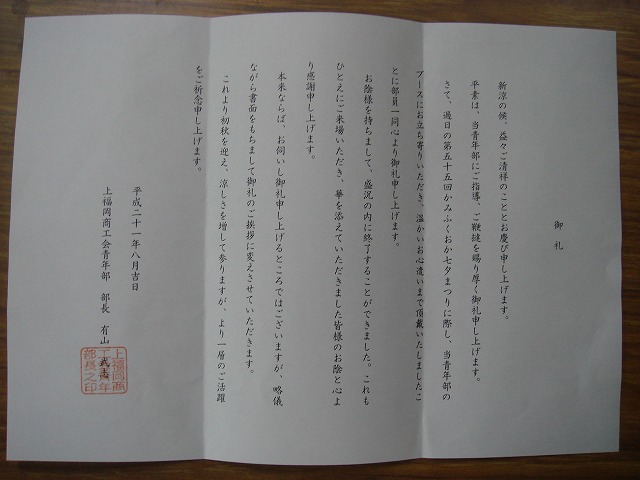 御礼
新涼の候、益々ご清祥のこととお慶び申し上げます。
平素は、当青年部にご指導、ご鞭撻を賜り厚く御礼申し上げます。
さて、過日の第五十五回かみふくおか七夕まつりに際し、当青年部の
ブースにお立ち寄りいただき、温かいお心遣いまで頂戴いたしましたこ
とに部員一同心より御礼申し上げます。
お陰様を持ちまして、盛況の内に終了することができました。これも
ひとえにご来場いただき、華を添えていただきました皆様のお陰と心よ
り感謝申し上げます。
本来ならば、お伺いし御礼申し上げるところではございますが、略儀
ながら書面をもちまして御礼のご挨拶に変えさせていただきます。
これより初秋を迎え、涼しさを増して参りますが、より一層のご活躍
をご祈念申し上げます。
平成二十一年八月吉日
上福岡商工会青年部 部長 有山 武志
上福岡商
工会青年
部長之印